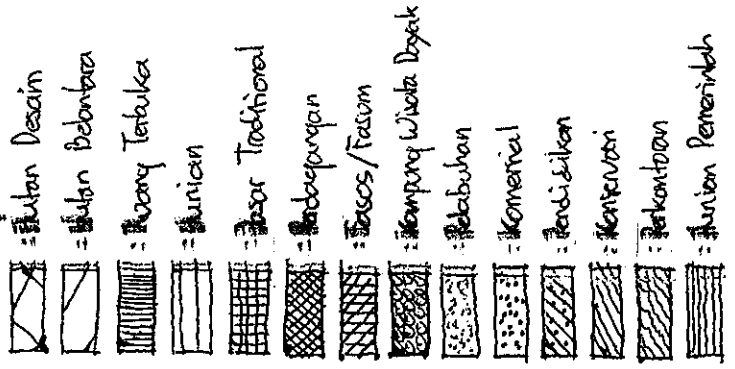 : Hutan Desain
: Hutan Belantara
: Ruang Terbuka
: Hunian
: Pasar Traditional
: Perdagangan
: Fasos/Fasum
: Kampung Wisata Dayak
: Pelabuhan
: Komersial
: Pendidikan
: Konservasi
: Perkantoran
: Hunian Pemerintah